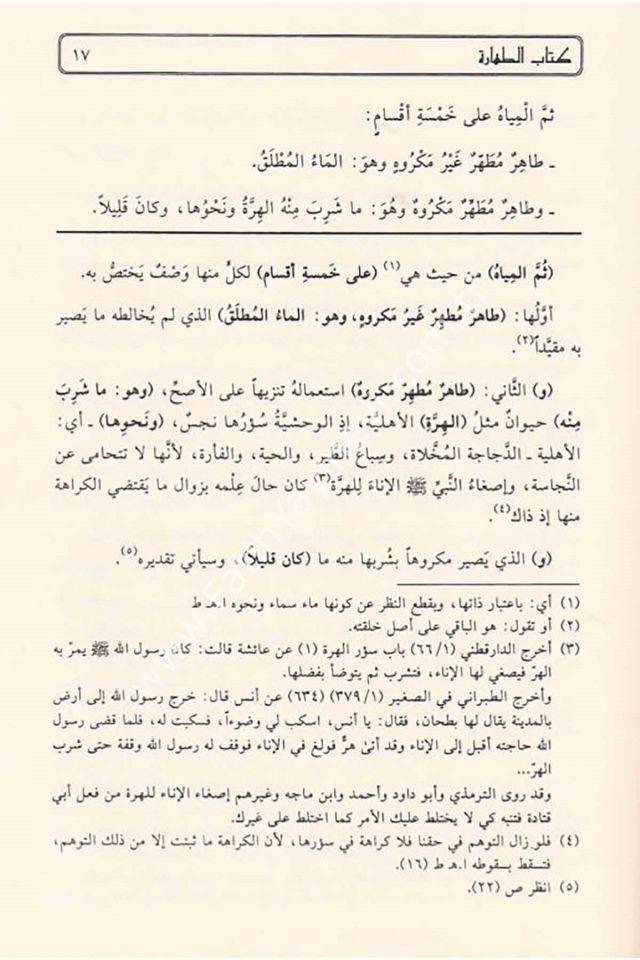 كتاب الطهارة ١٧
ثمَّ الْمِياهُ على خَمْسَةِ أقْسامٍ:
ـ طاهِرٌ مُطَهِّرٌ غَيْرُ مَكْرُوهٍ وهوَ: الماءُ المُطْلَقُ.
ـ وطاهِرٌ مُطَهِّرٌ مَكْروهٌ وهُوَ: ما شَرِبَ مِنْهُ الهِرَّةُ ونَحْوُها، وكانَ قَلِيلاً.
(ثُمَّ المِياهُ) من حيث هي(١) (على خَمسةِ أقسام) لكلِّ منها وَصْفٌ يَختصُّ به.
أوَّلُها: (طاهرٌ مُطهِّرٌ غَيرُ مَكروهٍ، وهو: الماءُ المُطلَقُ) الذي لم يُخالطه ما يَصير
به مقيَّداً(٢).
(و) الثَّاني: (طاهرٌ مُطهِّرٌ مَكروهٌ) استعمالهُ تنزيهاً على الأصحِّ، (وهو: ما شَرِبَ
مِنْه) حيوانٌ مثلُ (الهِرَّةِ) الأهليَّة، إذِ الوحشيَّةُ سُؤرُها نجسٌ، (ونَحوِها) ـ أي:
الأهلية ـ الدَّجاجة المُخَّلاة، وسِباعُ الطَّير، والحية، والفأرة، لأنَّها لا تتحامى عن
النَّجاسة، وإصغاءُ النَّبيِّ ﷺ الإناءَ للهرَّة(٣) كان حالَ عِلْمه بزوال ما يَقتضي الكراهة
منها إذ ذاك(٤).
(و) الذي يَصير مكروهاً بشُربها منه ما (كان قليلاً)، وسيأتي تقديره(٥).
(١) أي: باعتبار ذاتها، وبقطع النظر عن كونها ماء سماء ونحوه ا.هـ ط
(٢) أو تقول: هو الباقي على أصل خلقته.
(٣) أخرج الدارقطني (٦٦/١) باب سؤر الهرة (١) عن عائشة قالت: كان رسول الله ﷺ يمرّ به
الهرّ فيصغي لها الإناء، فتشرب ثم يتوضأ بفضلها.
وأخرج الطبراني في الصغير (٣٧٩/١) (٦٣٤) عن أنس قال: خرج رسول الله إلى أرض
بالمدينة يقال لها بطحان، فقال: يا أنس، اسكب لي وضوءاً، فسكبت له، فلما قضى رسول
الله حاجته أقبل إلى الإناء وقد أتىٰ هرٌّ فولغ في الإناء فوقف له رسول الله وقفة حتى شرب
الهرّ...
وقد روى الترمذي وأبو داود وأحمد وابن ماجه وغيرهم إصغاء الإناء للهرة من فعل أبي
قتادة فتنبه كي لا يختلط عليك الأمر كما اختلط على غيرك.
(٤) فلو زال التوهم في حقنا فلا كراهة في سؤرها، لأن الكراهة ما ثبتت إلا من ذلك التوهم،
فتسقط بسقوطه ا.هـ ط (١٦).
(٥) انظر ص (٢٢).